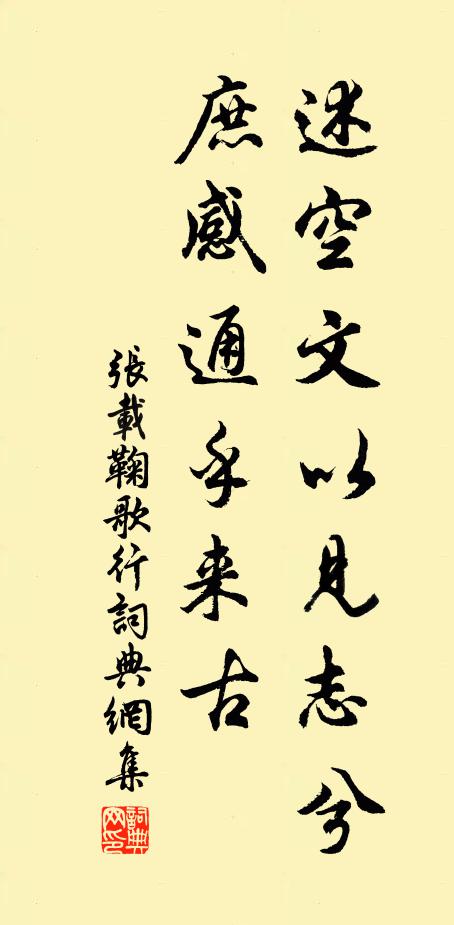 述空文以見志兮
庶感通乎来古
張載鞠歌行詞典網集
詞典網印